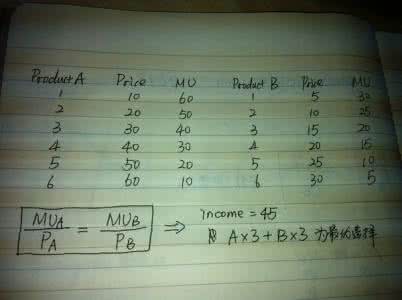 Product A Price MU Product B Price MU
1 10 60 1 5 30
2 20 50 2 10 25
3 30 40 3 15 20
4 40 30 4 20 15
5 50 20 5 25 10
6 60 10 6 30 5
MUA/PA = MUB/PB ⇒ income = 45
则 A×3+B×3 为最优选择